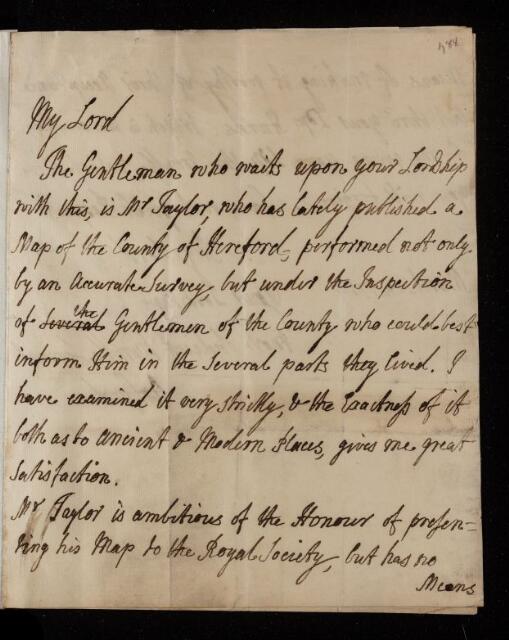 488
My Lord
The Gentleman who waits upon your Lordship
with this, is Mr Taylor, who has lately published a
Map of the County of Hereford, performed not only
by an Accurate Survey, but under the Inspection
of several the Gentlemen of the County who could best
inform Him in the Several parts they lived. I
have examined it very strictly, & the Exactness of it
both as to Ancient & Modern Places, gives me great
Satisfaction.
Mr Taylor is ambitious of the Honour of presen=
ting his Map to the Royal Society, but has no
Means